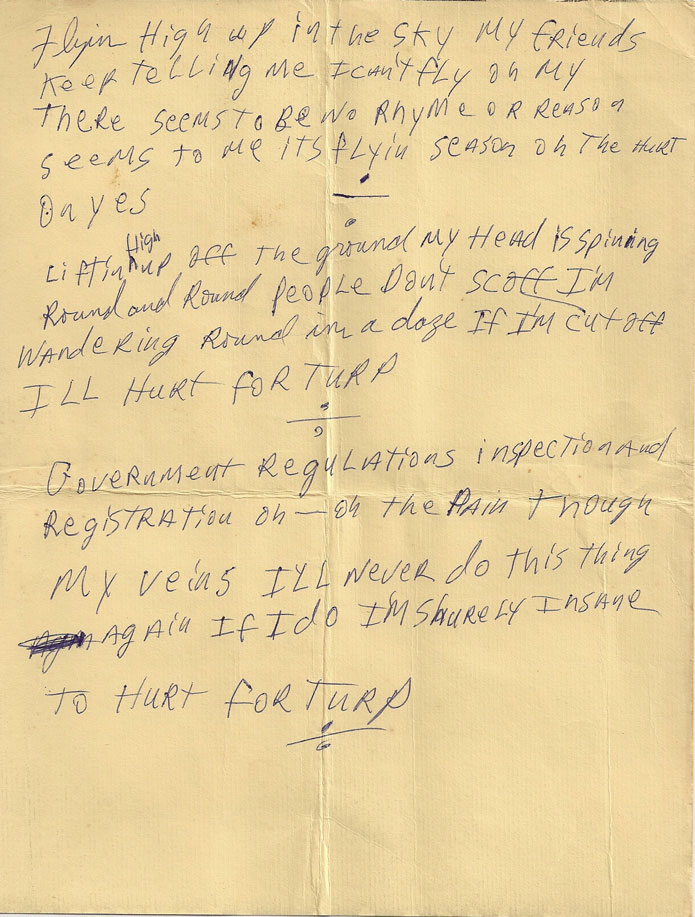 Flyin High up in the SKY MY friends
Keep TeLLing Me I can't fLY oh MY
There seems To Be No Rhyme or Reason
seems to Me its flyin season oh The HURT
Oh yes
Liftin High up off the ground My Head is spinning
Round and Round People Dont scoff I'm
Wandering Round in a daze If I'm cut off
ILL HURT foR TURP
Government Regulations inspection And
Registration oh — oh the PAin Though
My veins ILL never do this thing
Again If I do I'm Shurely Insane
To HURT foR TURP